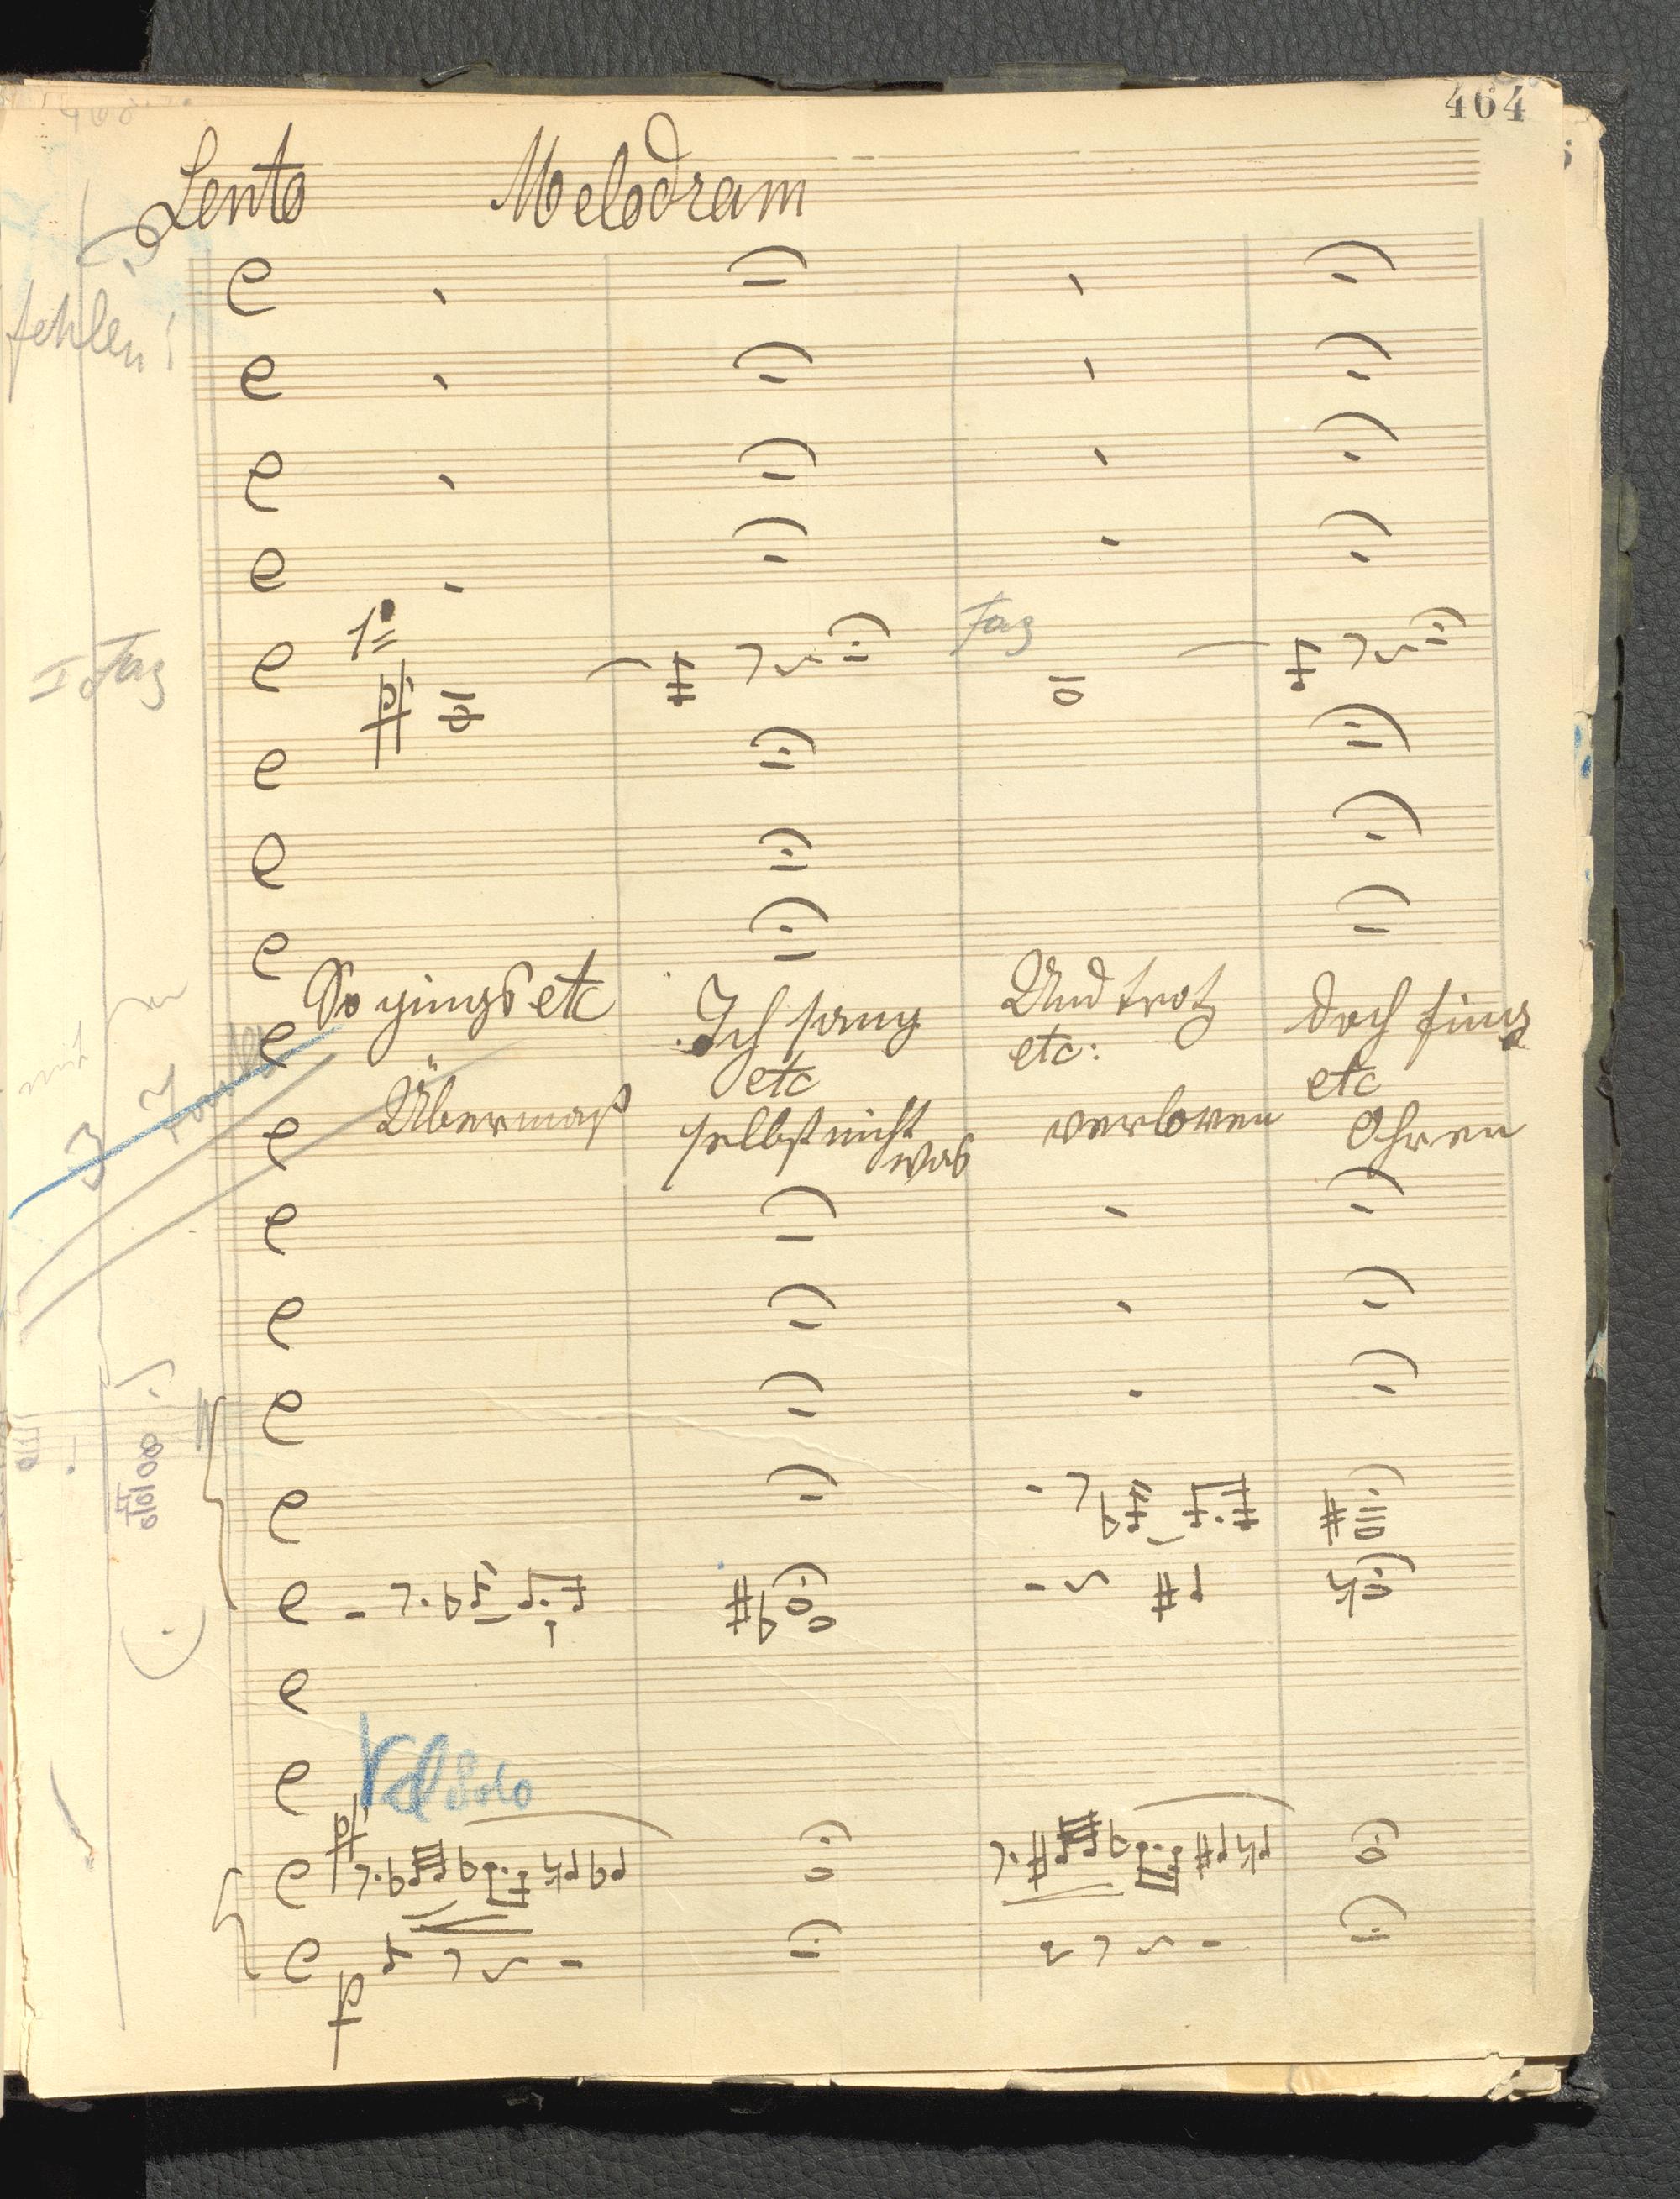 464
Lento Melodram
fehlen!
1º
I Fag
Fag
So gings etc Ich sang etc Und trotz etc: doch fing etc
Übermaß selbst nicht was verloren Ohren
3
Vcl Solo